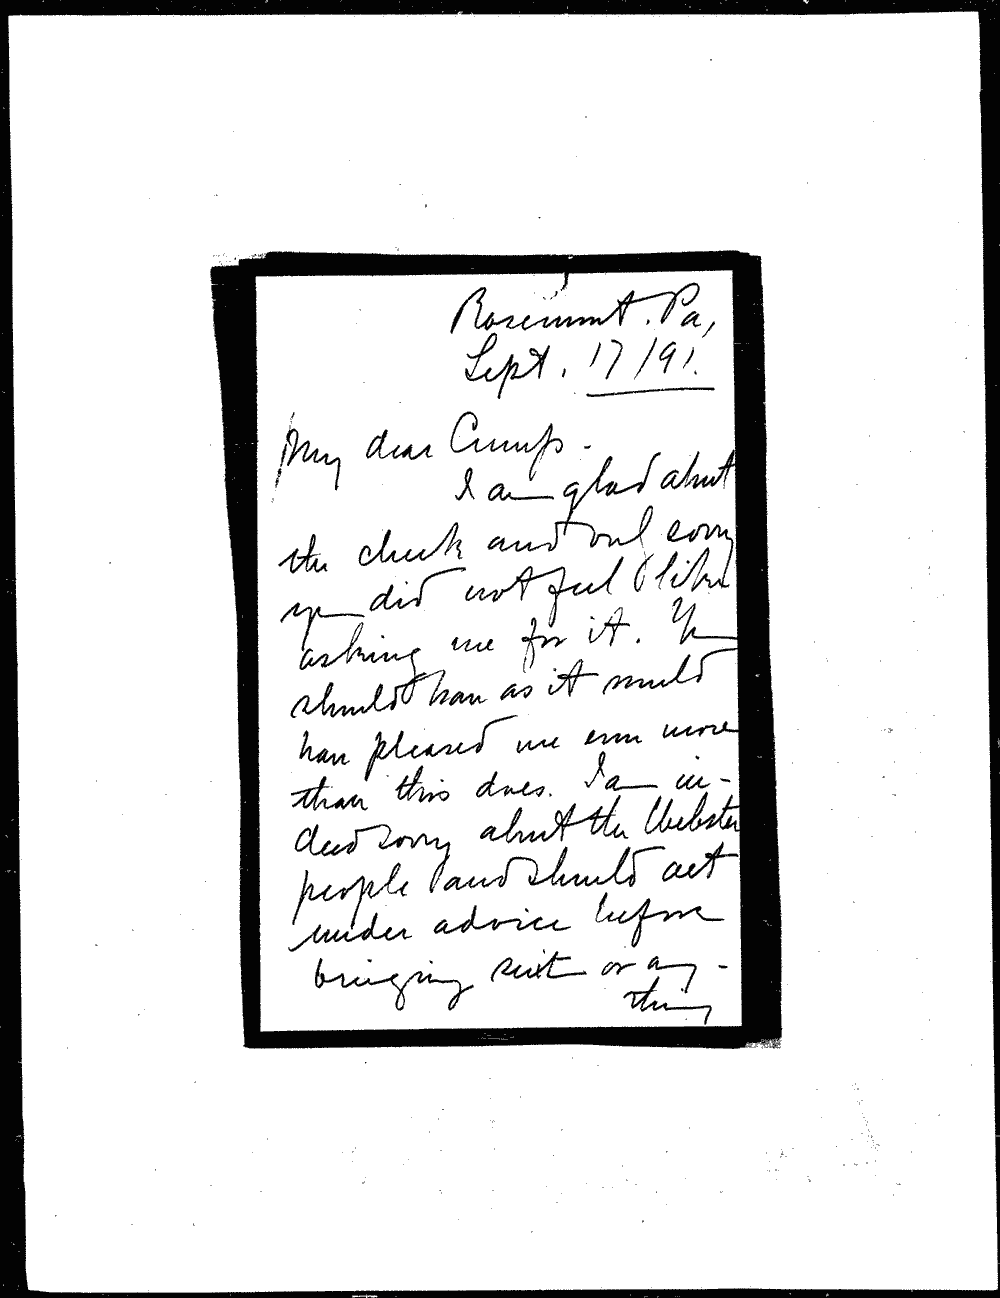 Rosemont. Pa,
Sept. 17/91.
My dear Crump -
I am glad about
the check and only sorry
you did not feel like
asking me for it. You
should have as it would
have pleased me even more
than this does. I am in-
deed sorry about the Webster
people and should act
under advice before
bringing suit or any-
thing